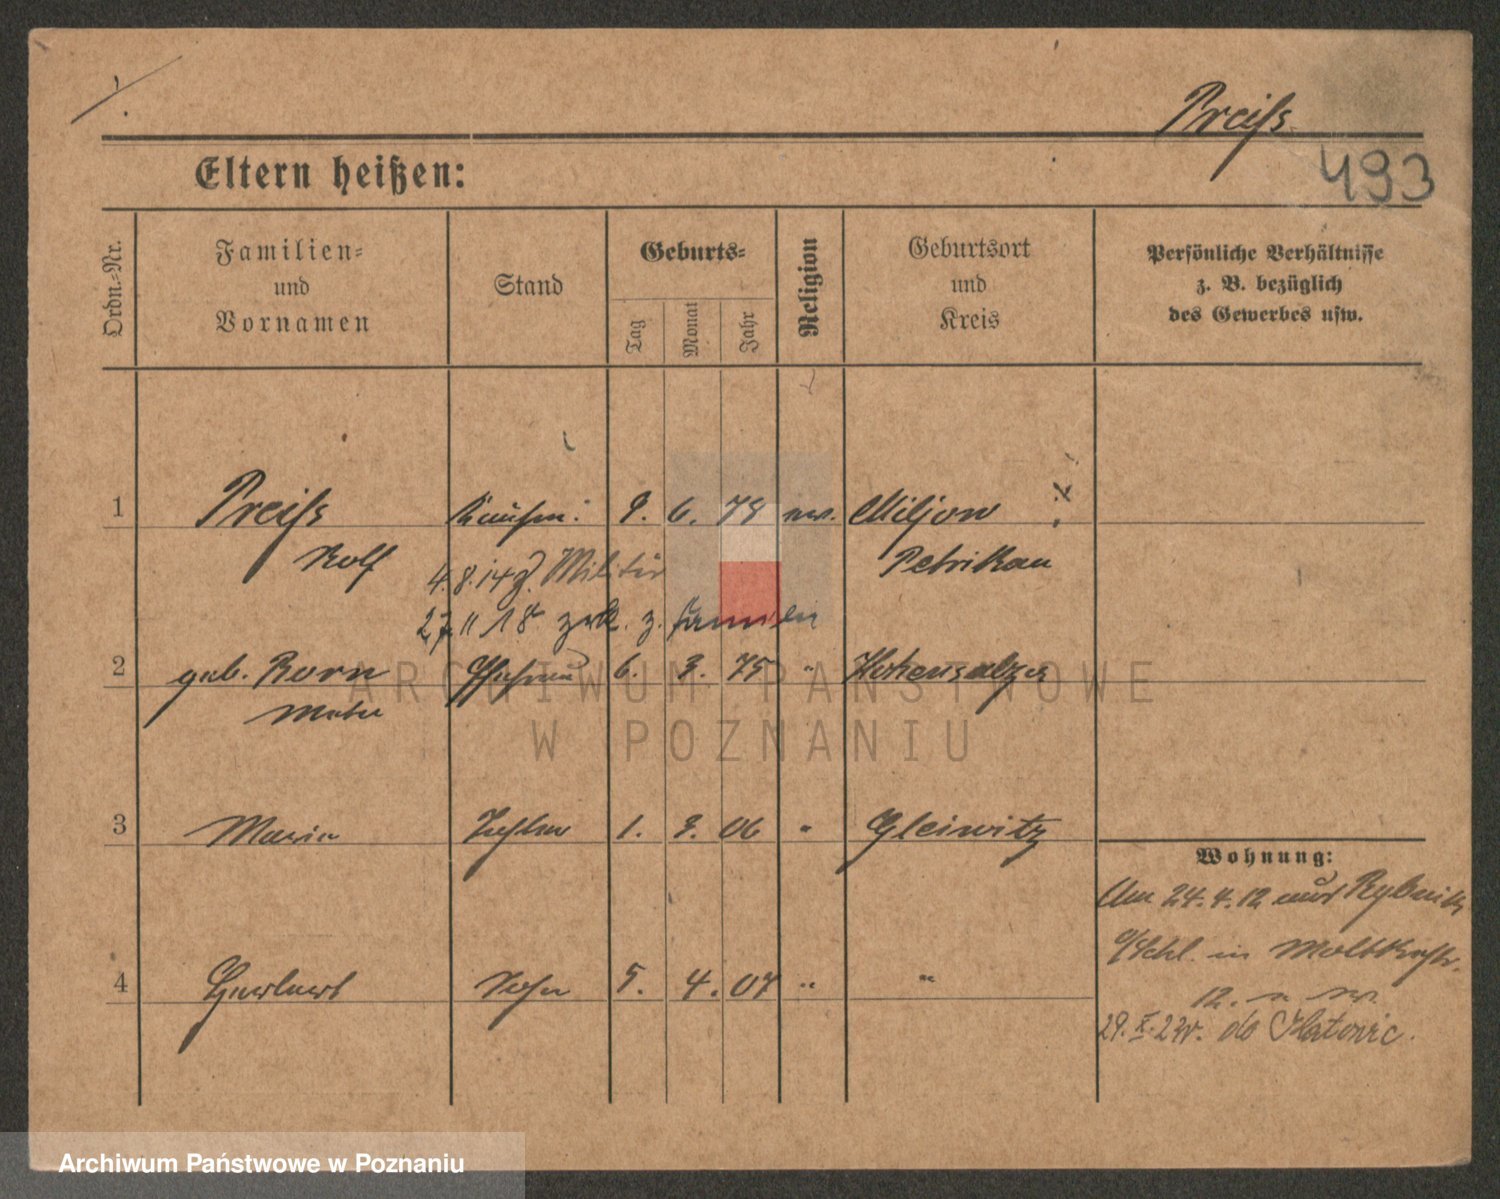 Preiſs
493
Eltern heißen:
Ordn.=Nr.
Familien=
und
Vornamen
Stand
Geburts=
Tag
Monat
Jahr
Religion
Geburtsort
und
Kreis
Persönliche Verhältnisse
z. B. bezüglich
des Gewerbes usw.
1 Preiſs Kaufm. 9. 6. 78 ew. Miljow
Rolf Petrikau
4.8.14 z. Militär
27. 11 18 zrk. z. Familie
2 geb. Born Ehefrau 6. 3. 75 " Hohensalza
3 Maria Tochter 1. 3. 06 " Gleiwitz
Wohnung:
Am 24.4.12 aus Rybnik
O/Schl. in Moltkestr.
12.
4 Herbert Sohn 5. 4. 07 " "
29. X. 23 r. do Katowic.
ARCHIWUM PAŃSTWOWE
W POZNANIU
Archiwum Państwowe w Poznaniu